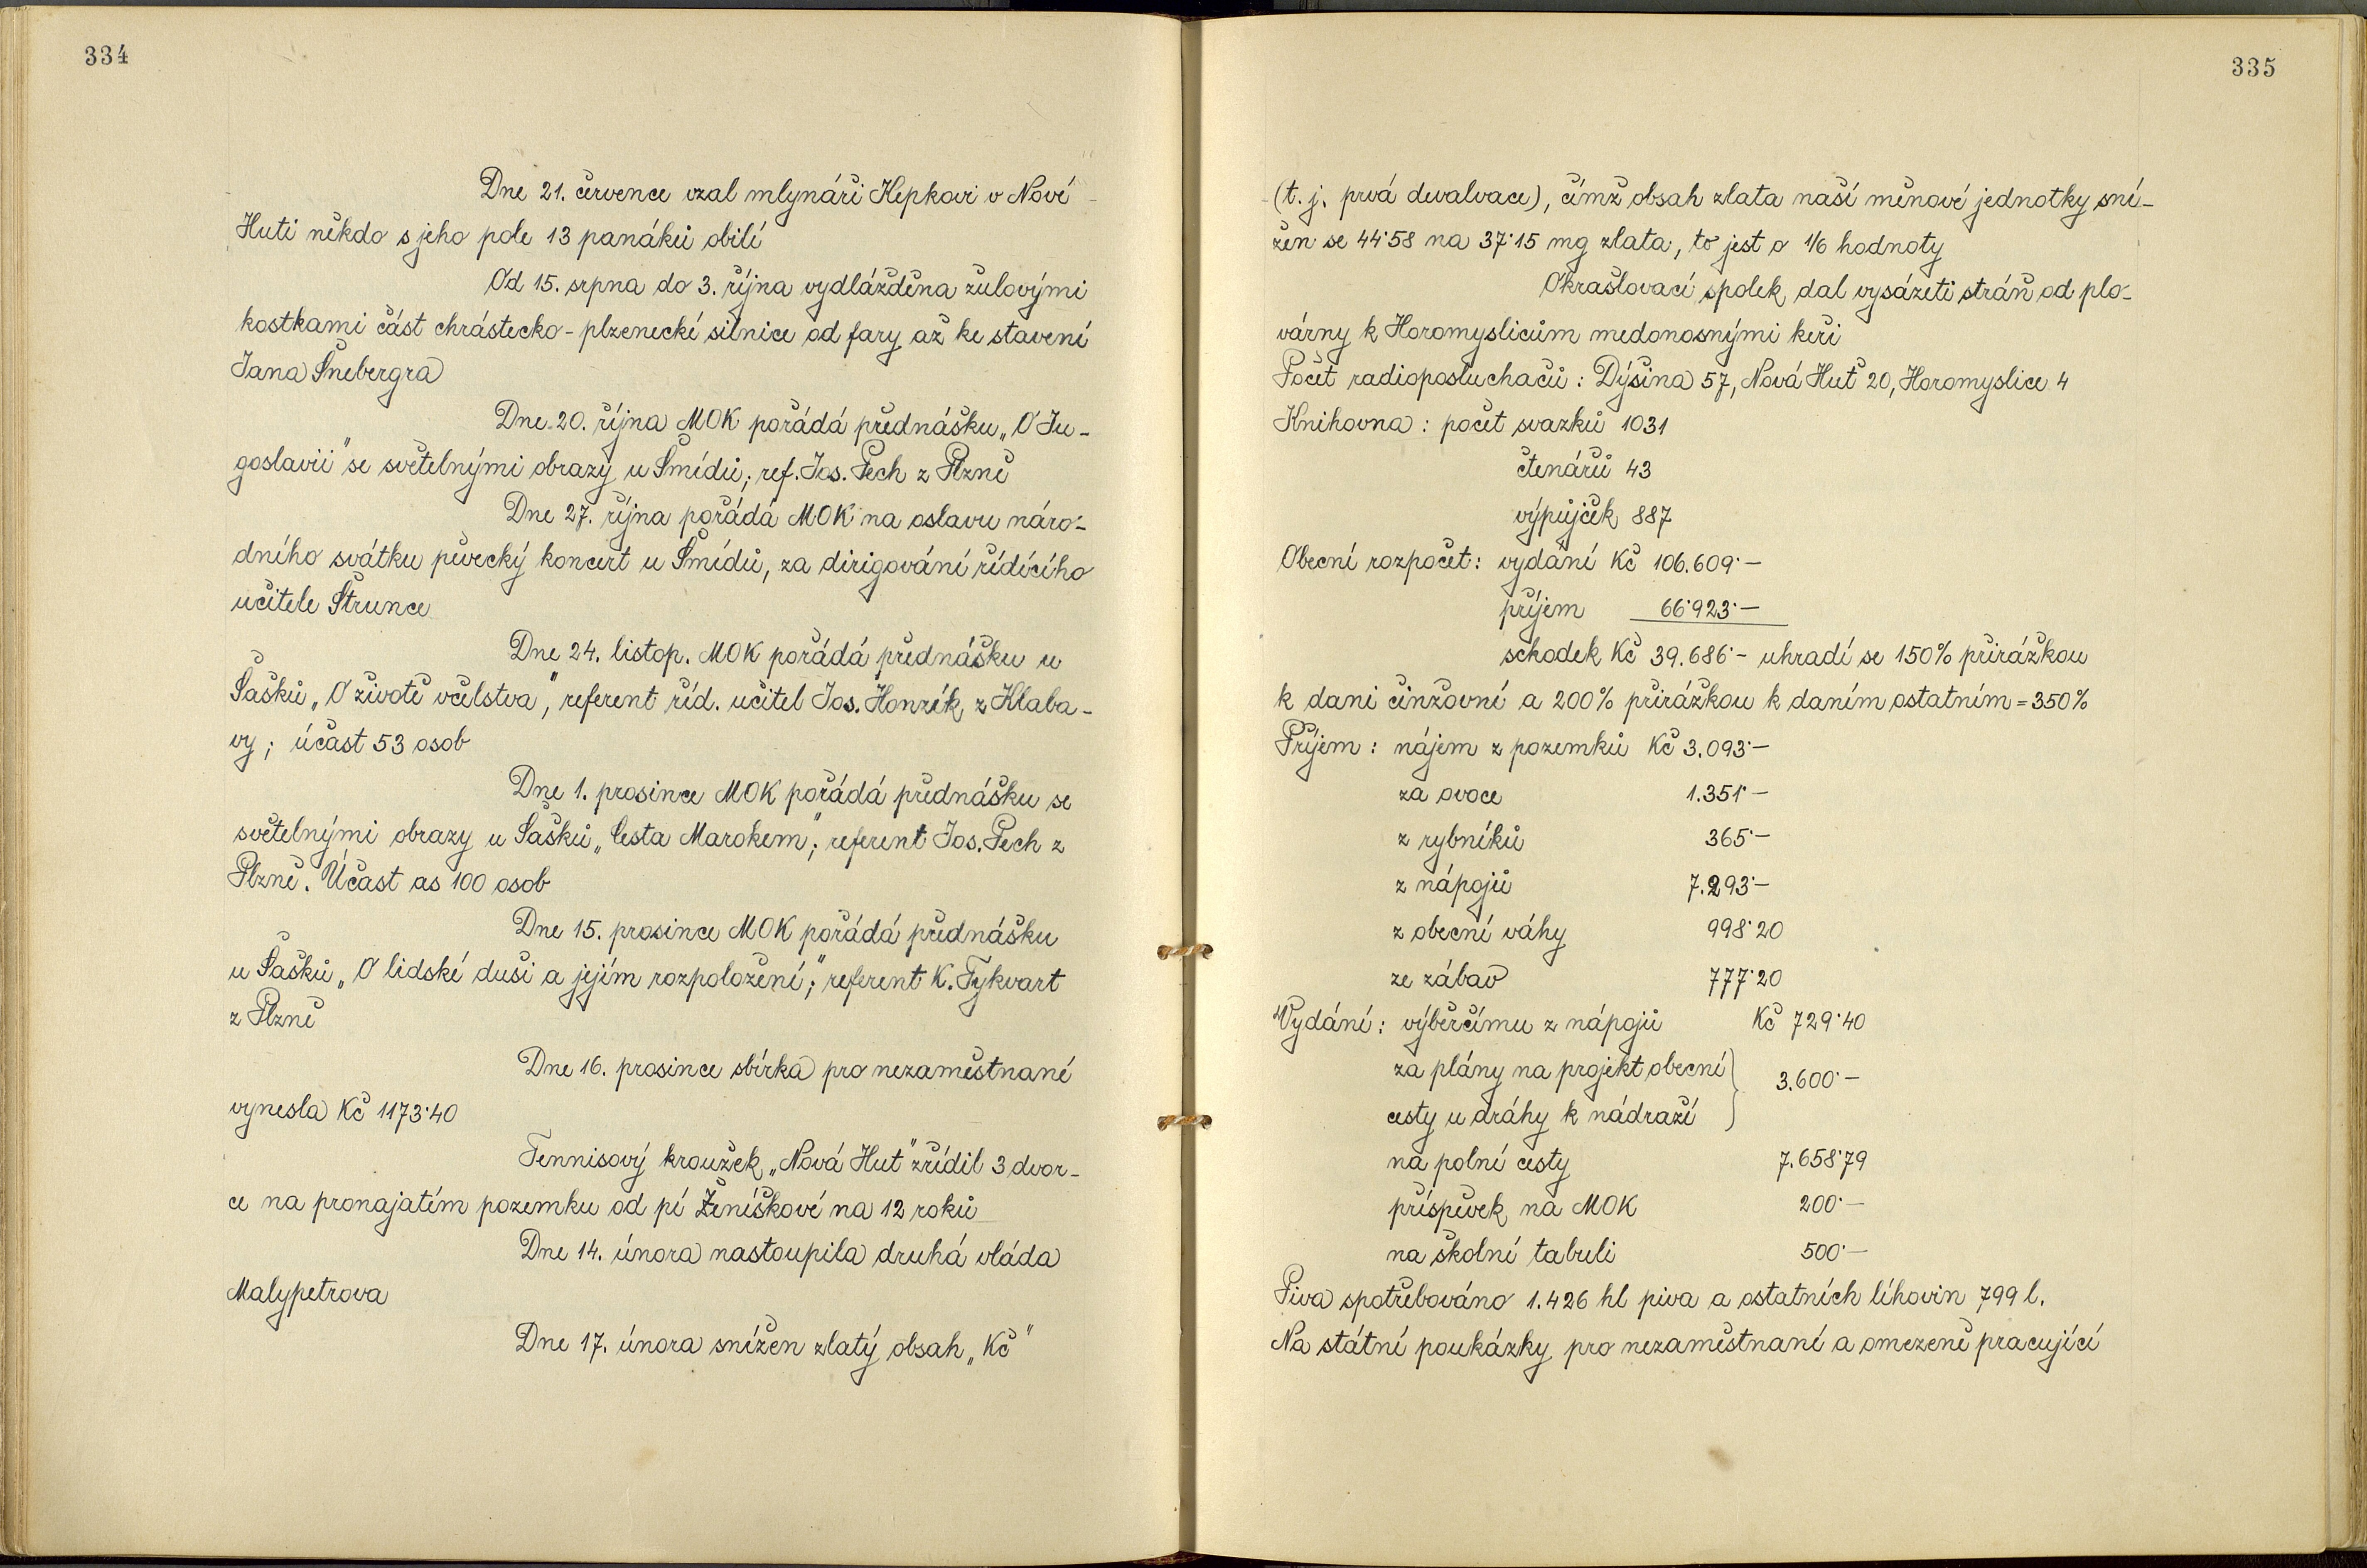 334
Dne 21. července vzal mlynáři Hepkovi v Nové
Huti někdo s jeho pole 13 panáků obilí
Od 15. srpna do 3. října vydlážděna žulovými
kostkami část chrástecko-plzenecké silnice od fary až ke stavení
Jana Šnebergra
Dne 20. října MOK pořádá přednášku „O Ju-
goslavii" se světelnými obrazy u Šmídů; ref. Jos. Pech z Plzně
Dne 27. října pořádá MOK na oslavu náro-
dního svátku pěvecký koncert u Šmídů, za dirigování řídícího
učitele Štrunce
Dne 24. listop. MOK pořádá přednášku u
Šašků „O životě včelstva", referent říd. učitel Jos. Honzík z Klaba-
vy; účast 53 osob
Dne 1. prosince MOK pořádá přednášku se
světelnými obrazy u Šašků „Cesta Marokem"; referent Jos. Pech z
Plzně. Účast as 100 osob
Dne 15. prosince MOK pořádá přednášku
u Šašků „O lidské duši a jejím rozpoložení"; referent K. Tykvart
z Plzně
Dne 16. prosince sbírka pro nezaměstnané
vynesla Kč 1173·40
Tennisový kroužek „Nová Huť" zřídil 3 dvor-
ce na pronajatém pozemku od pí Ženíškové na 12 roků
Dne 14. února nastoupila druhá vláda
Malypetrova
Dne 17. února snížen zlatý obsah „Kč"
335
(t. j. prvá devalvace), čímž obsah zlata naší měnové jednotky sní-
žen se 44·58 na 37·15 mg zlata, to jest o 1/6 hodnoty
Okrašlovací spolek dal vysázeti stráň od plo-
várny k Horomyslicům medonosnými keři
Počet radioposluchačů: Dýšina 57, Nová Huť 20, Horomyslice 4
Knihovna: počet svazků 1031
čtenářů 43
výpůjček 887
Obecní rozpočet: vydání Kč 106.609·—
příjem 66·923·—
schodek Kč 39.686·— uhradí se 150% přirážkou
k dani činžovní a 200% přirážkou k daním ostatním = 350%
Příjem: nájem z pozemků Kč 3.093·—
za ovoce 1.351·—
z rybníků 365·—
z nápojů 7.293·—
z obecní váhy 998·20
ze zábav 777·20
Vydání: výběrčímu z nápojů Kč 729·40
za plány na projekt obecní } 3.600·—
cesty u dráhy k nádraží
na polní cesty 7.658·79
příspěvek na MOK 200·—
na školní tabuli 500·—
Piva spotřebováno 1.426 hl piva a ostatních lihovin 799 l.
Na státní poukázky pro nezaměstnané a omezeně pracující